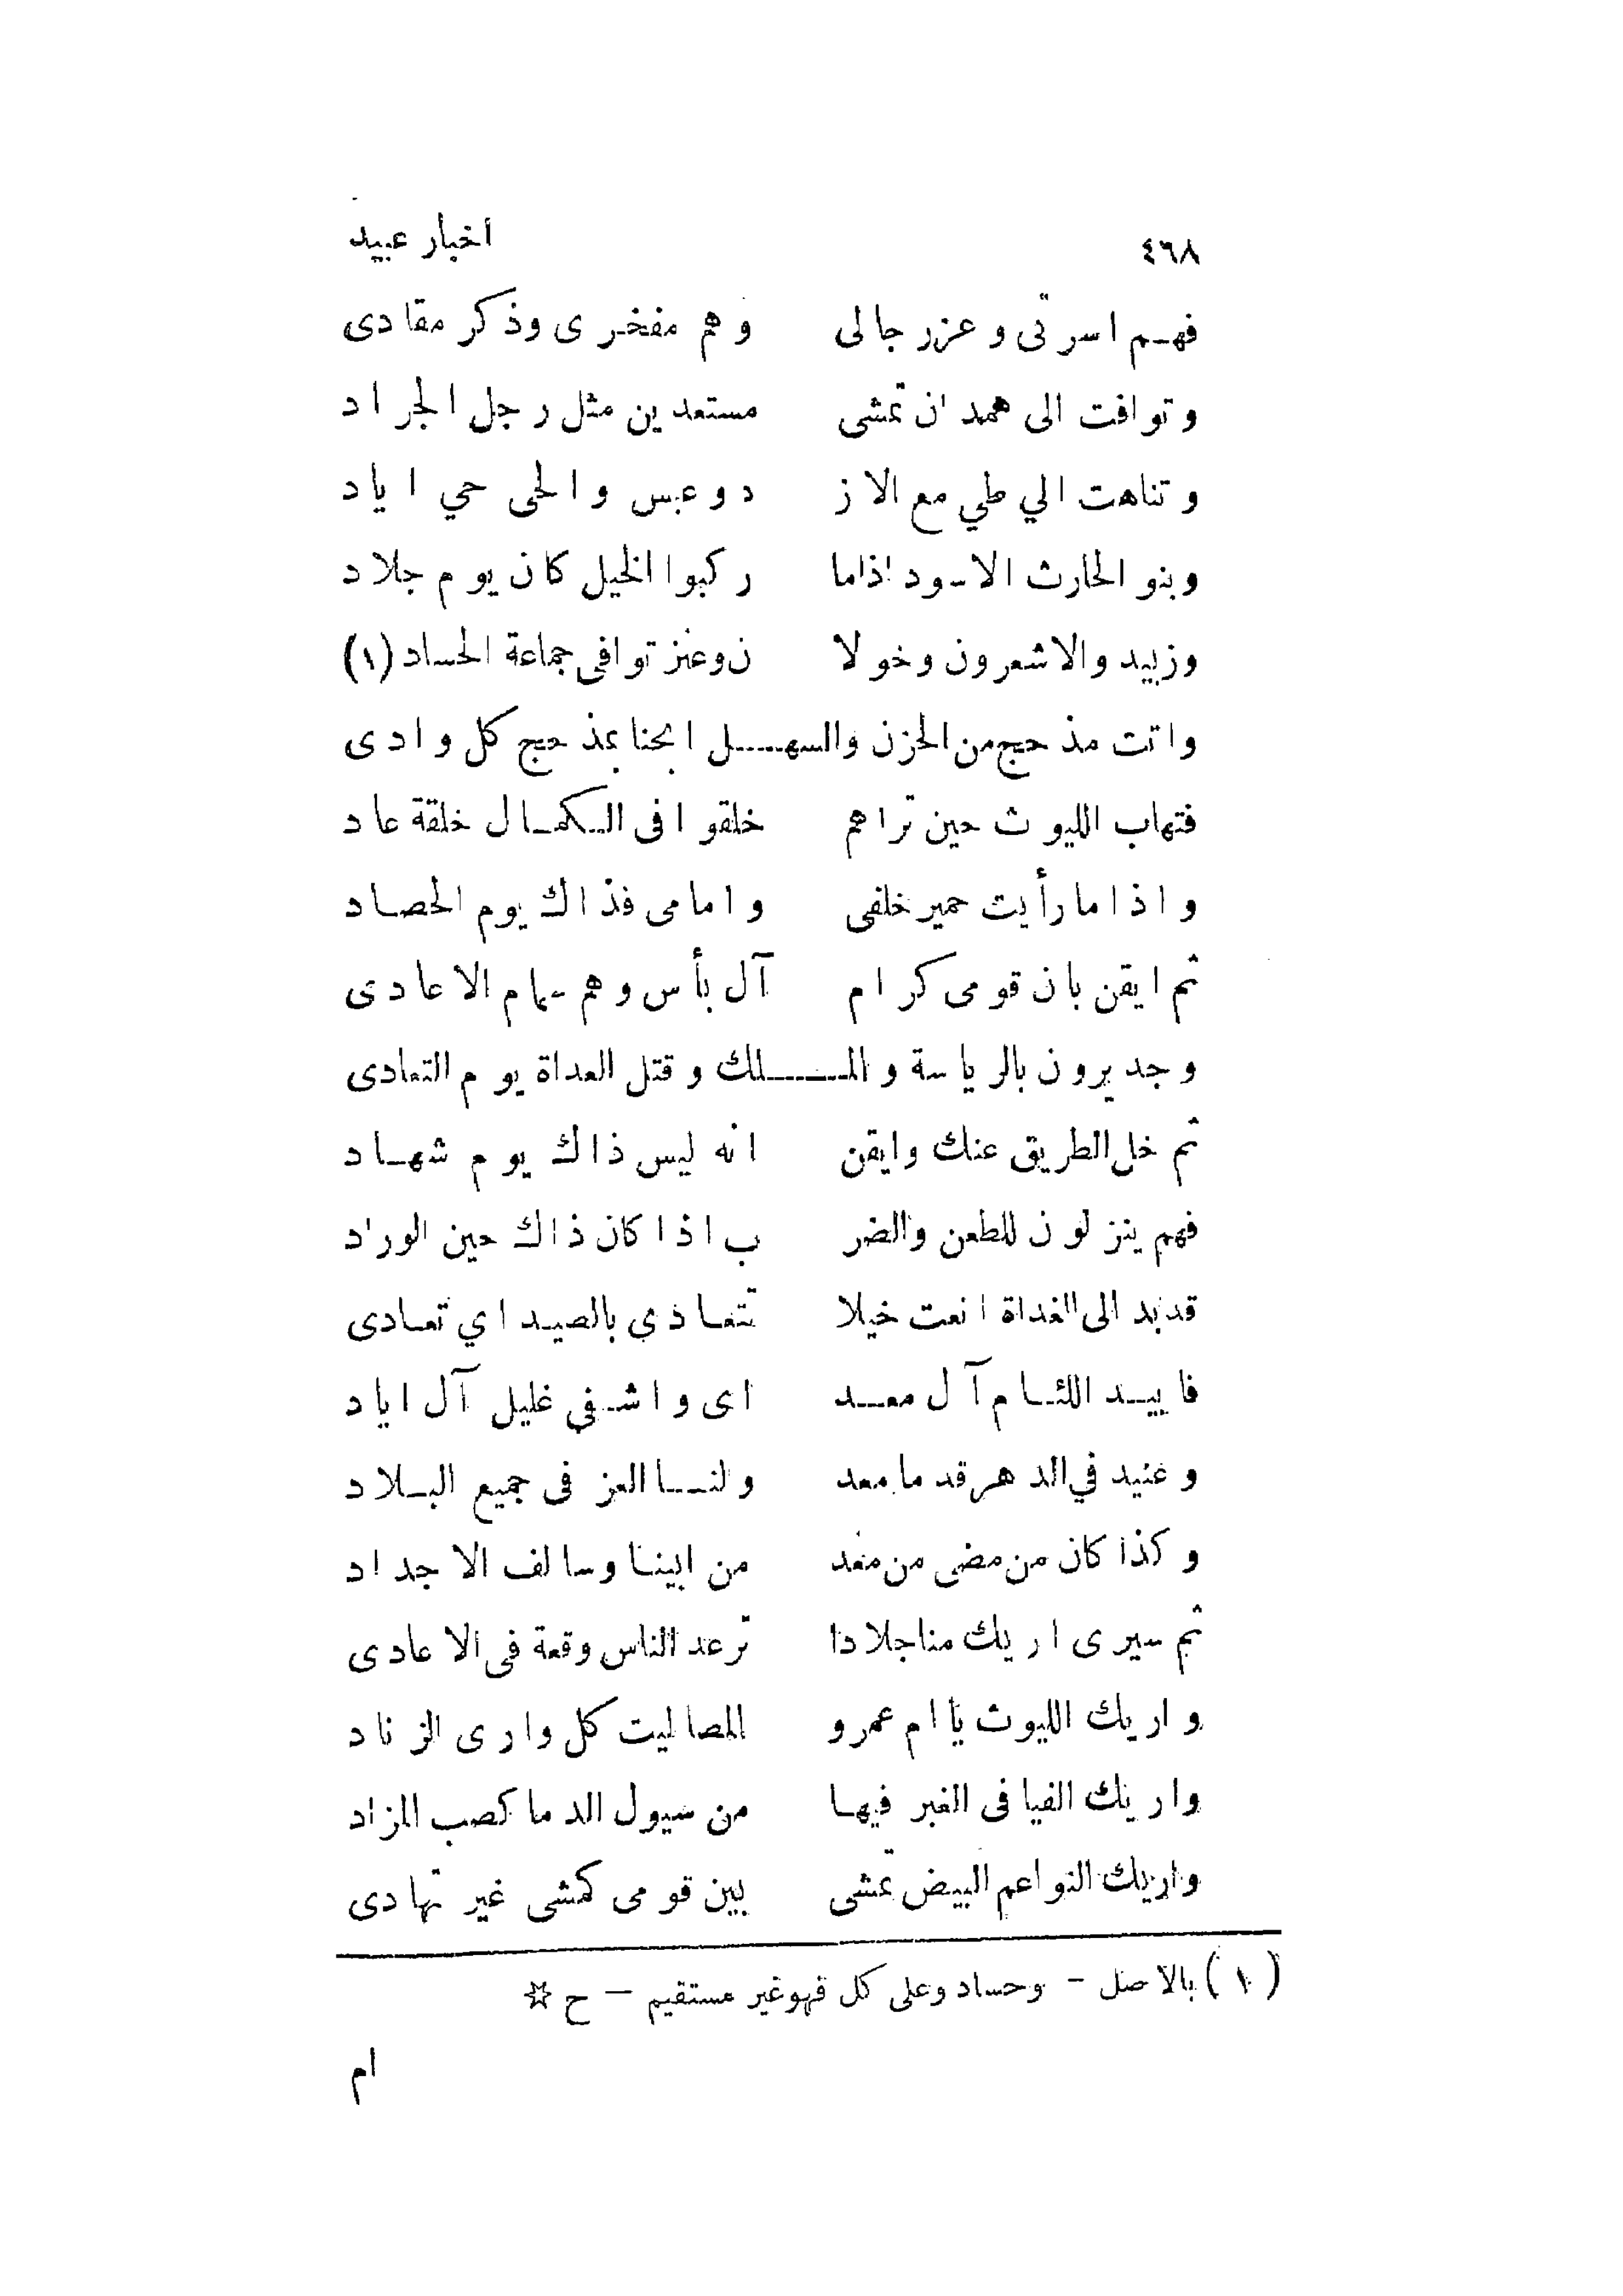 ٤٦٨ اخبار عبيد
فهم اسرتى وعز رجالى وهم مفخرى وذكر مقادى
وتوافت الى همدان تمشى مستعدين مثل رجل الجراد
وتناهت الي طي مع الاز د وعبس والحى حي اياد
وبنو الحارث الاسود اذاما ركبوا الخيل كان يوم جلاد
وزبيد والاشعرون وخولا ن وعنز توافى جماعة الحساد (١)
واتت مذحج من الحزن والسهل ابحنا بمذحج كل وادى
فتهاب الليوث حين تراهم خلقوا فى الكمال خلقة عاد
واذا ما رأيت حمير خلفى وامامى فذاك يوم الحصاد
ثم ايقن بان قومى كرام آل بأس وهم سمام الاعادى
وجديرون بالرياسة والملك وقتل العداة يوم التعادى
ثم خل الطريق عنك وايقن انه ليس ذاك يوم شهاد
فهم ينزلون للطعن والضر ب اذا كان ذاك حين الوراد
قد بد الى الغداة انعت خيلا تتعاذي بالصيد اي تعادى
فابيد اللئام آل معد اى واشفي غليل آل اياد
وعنيد في الدهر قدما معد ولنا العز فى جميع البلاد
وكذا كان من مضى من معد من ابينا وسالف الاجداد
ثم سيرى اريك منا جلادا ترعد الناس وقعة فى الاعادى
واريك الليوث يا ام عمرو المصاليت كل وارى الزناد
واريك الفيافى الغبر فيها من سيول الدما كصب المزاد
واريك النواعم البيض تمشى بين قومى كمشى غير تهادى
(١) بالاصل - وحساد وعلى كل فهو غير مستقيم - ح ☆
ام